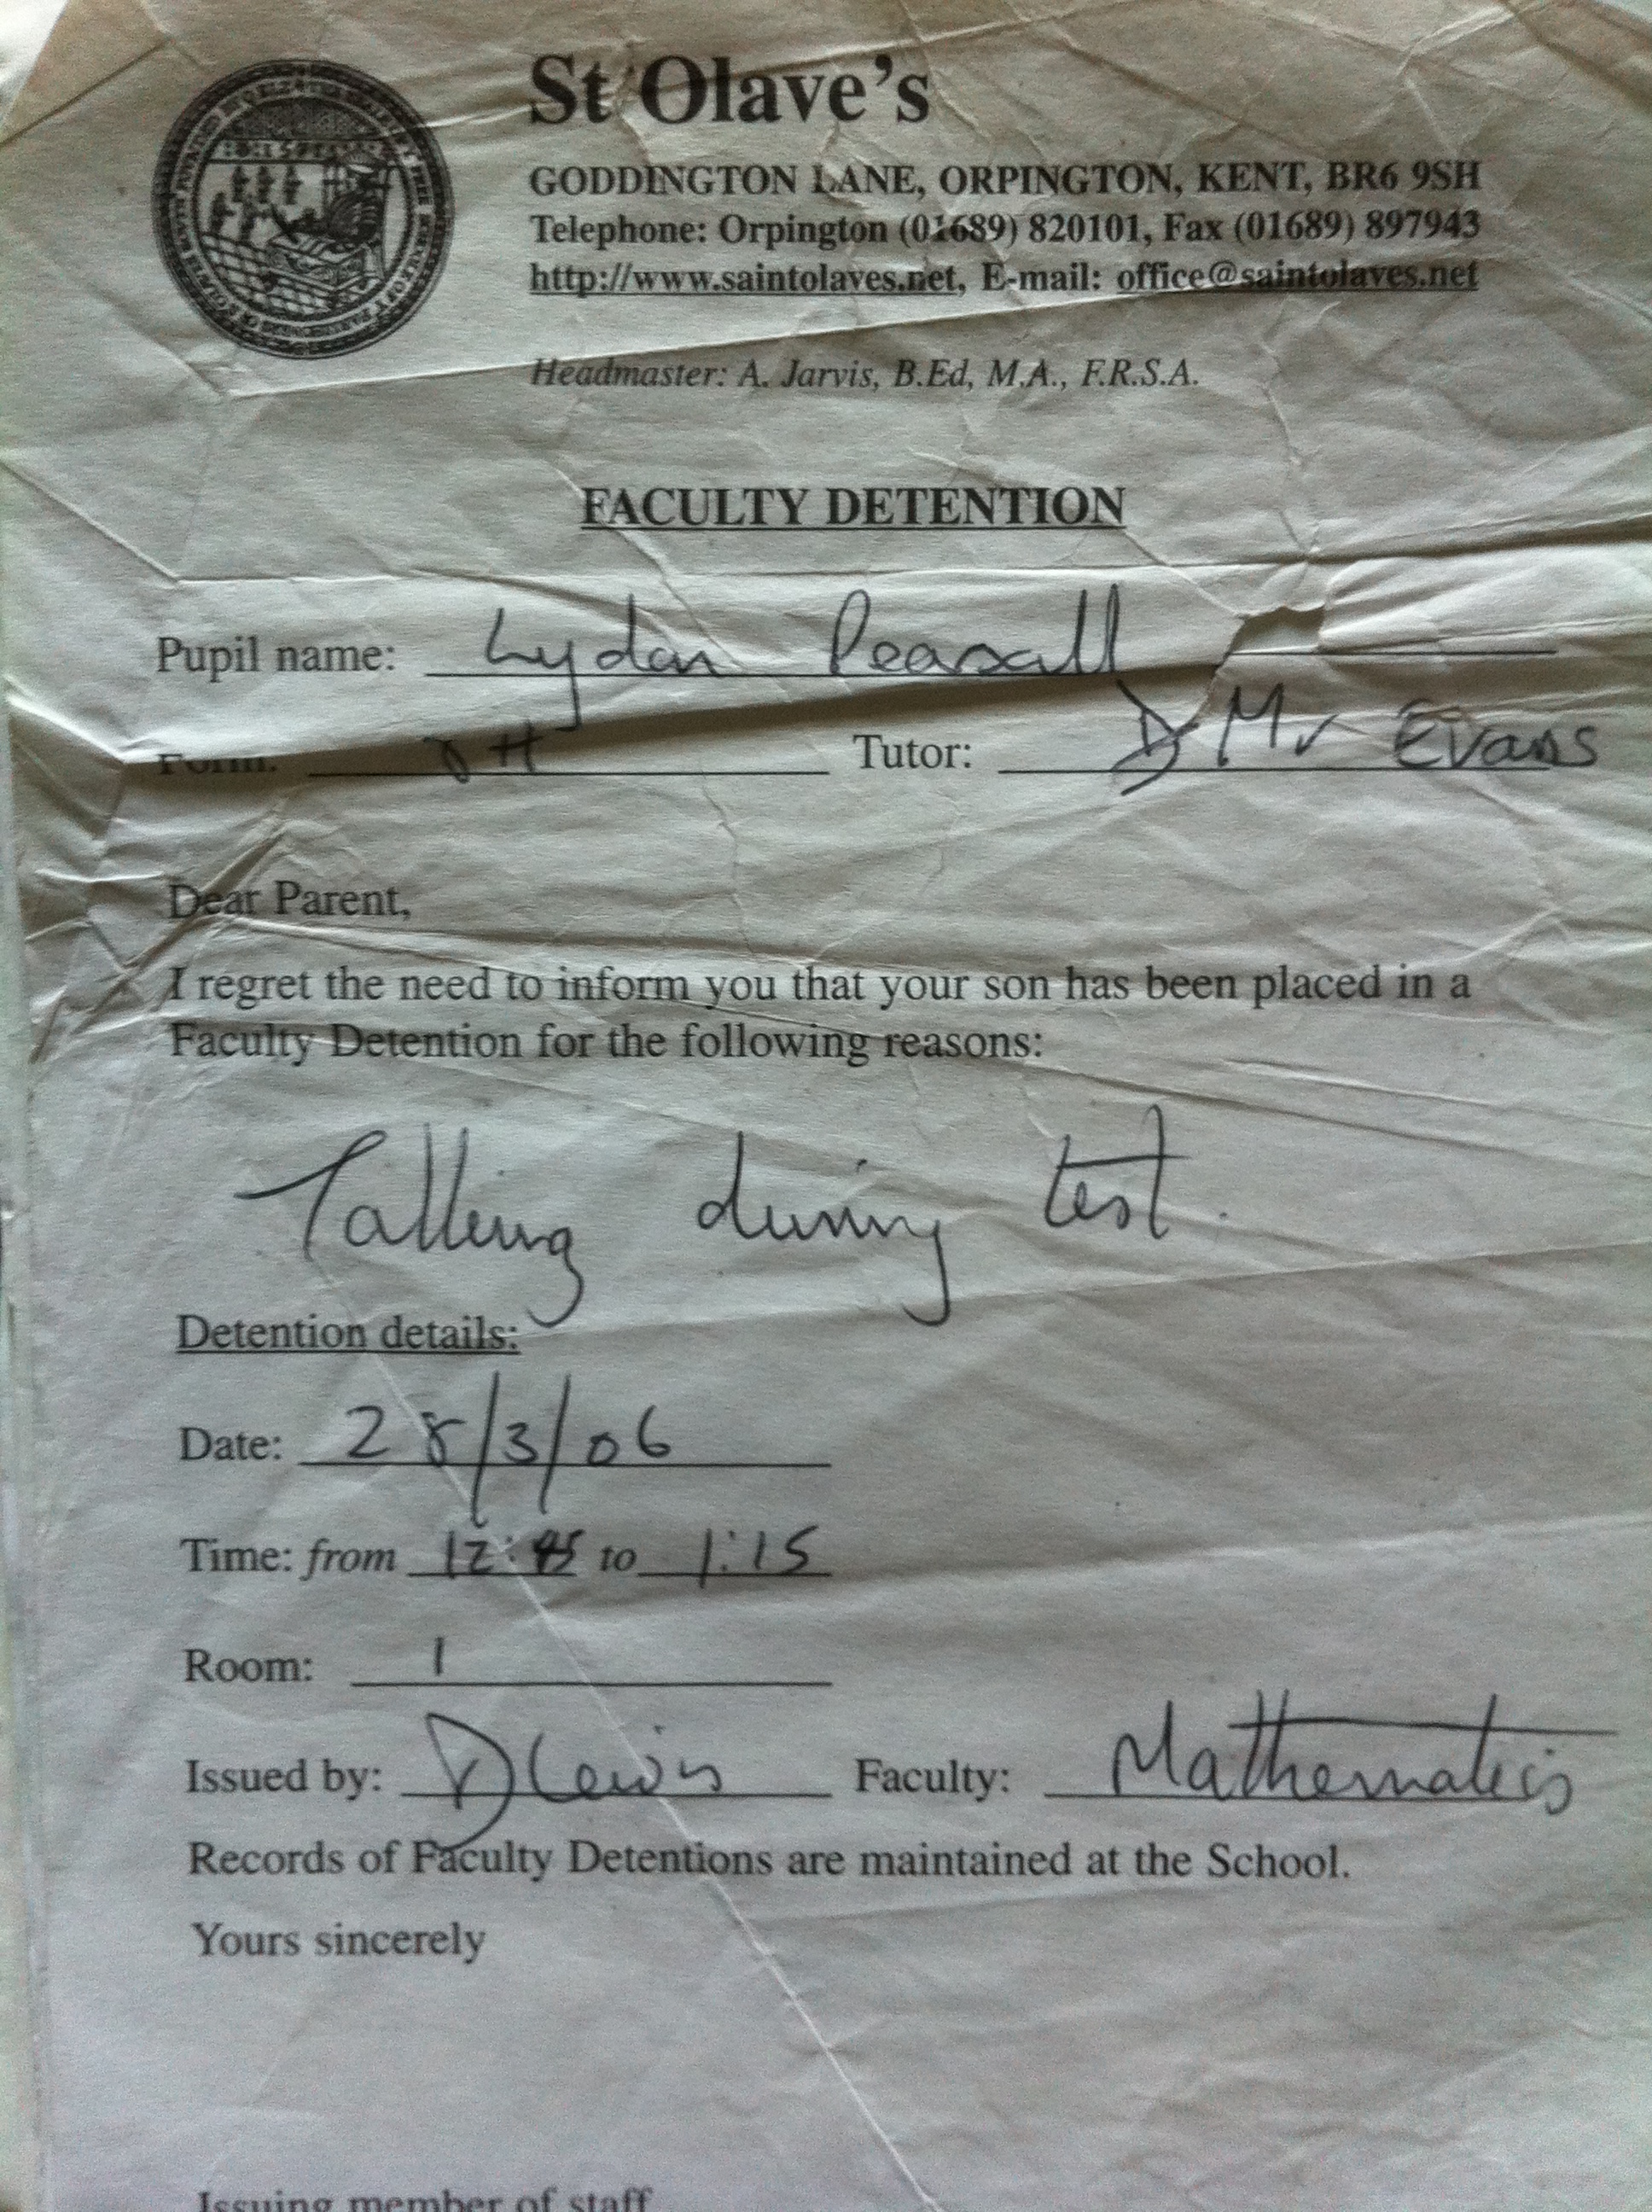 St Olave's
GODDINGTON LANE, ORPINGTON, KENT, BR6 9SH
Telephone: Orpington (01689) 820101, Fax (01689) 897943
http://www.saintolaves.net, E-mail: office@saintolaves.net
Headmaster: A. Jarvis, B.Ed, M.A., F.R.S.A.
FACULTY DETENTION
Pupil name: Lydon Pearsall
Form: 8H Tutor: Mr Evans
Dear Parent,
I regret the need to inform you that your son has been placed in a
Faculty Detention for the following reasons:
Talking during test.
Detention details:
Date: 28/3/06
Time: from 12:45 to 1:15
Room: 1
Issued by: D Lewis Faculty: Mathematics
Records of Faculty Detentions are maintained at the School.
Yours sincerely
Issuing member of staff